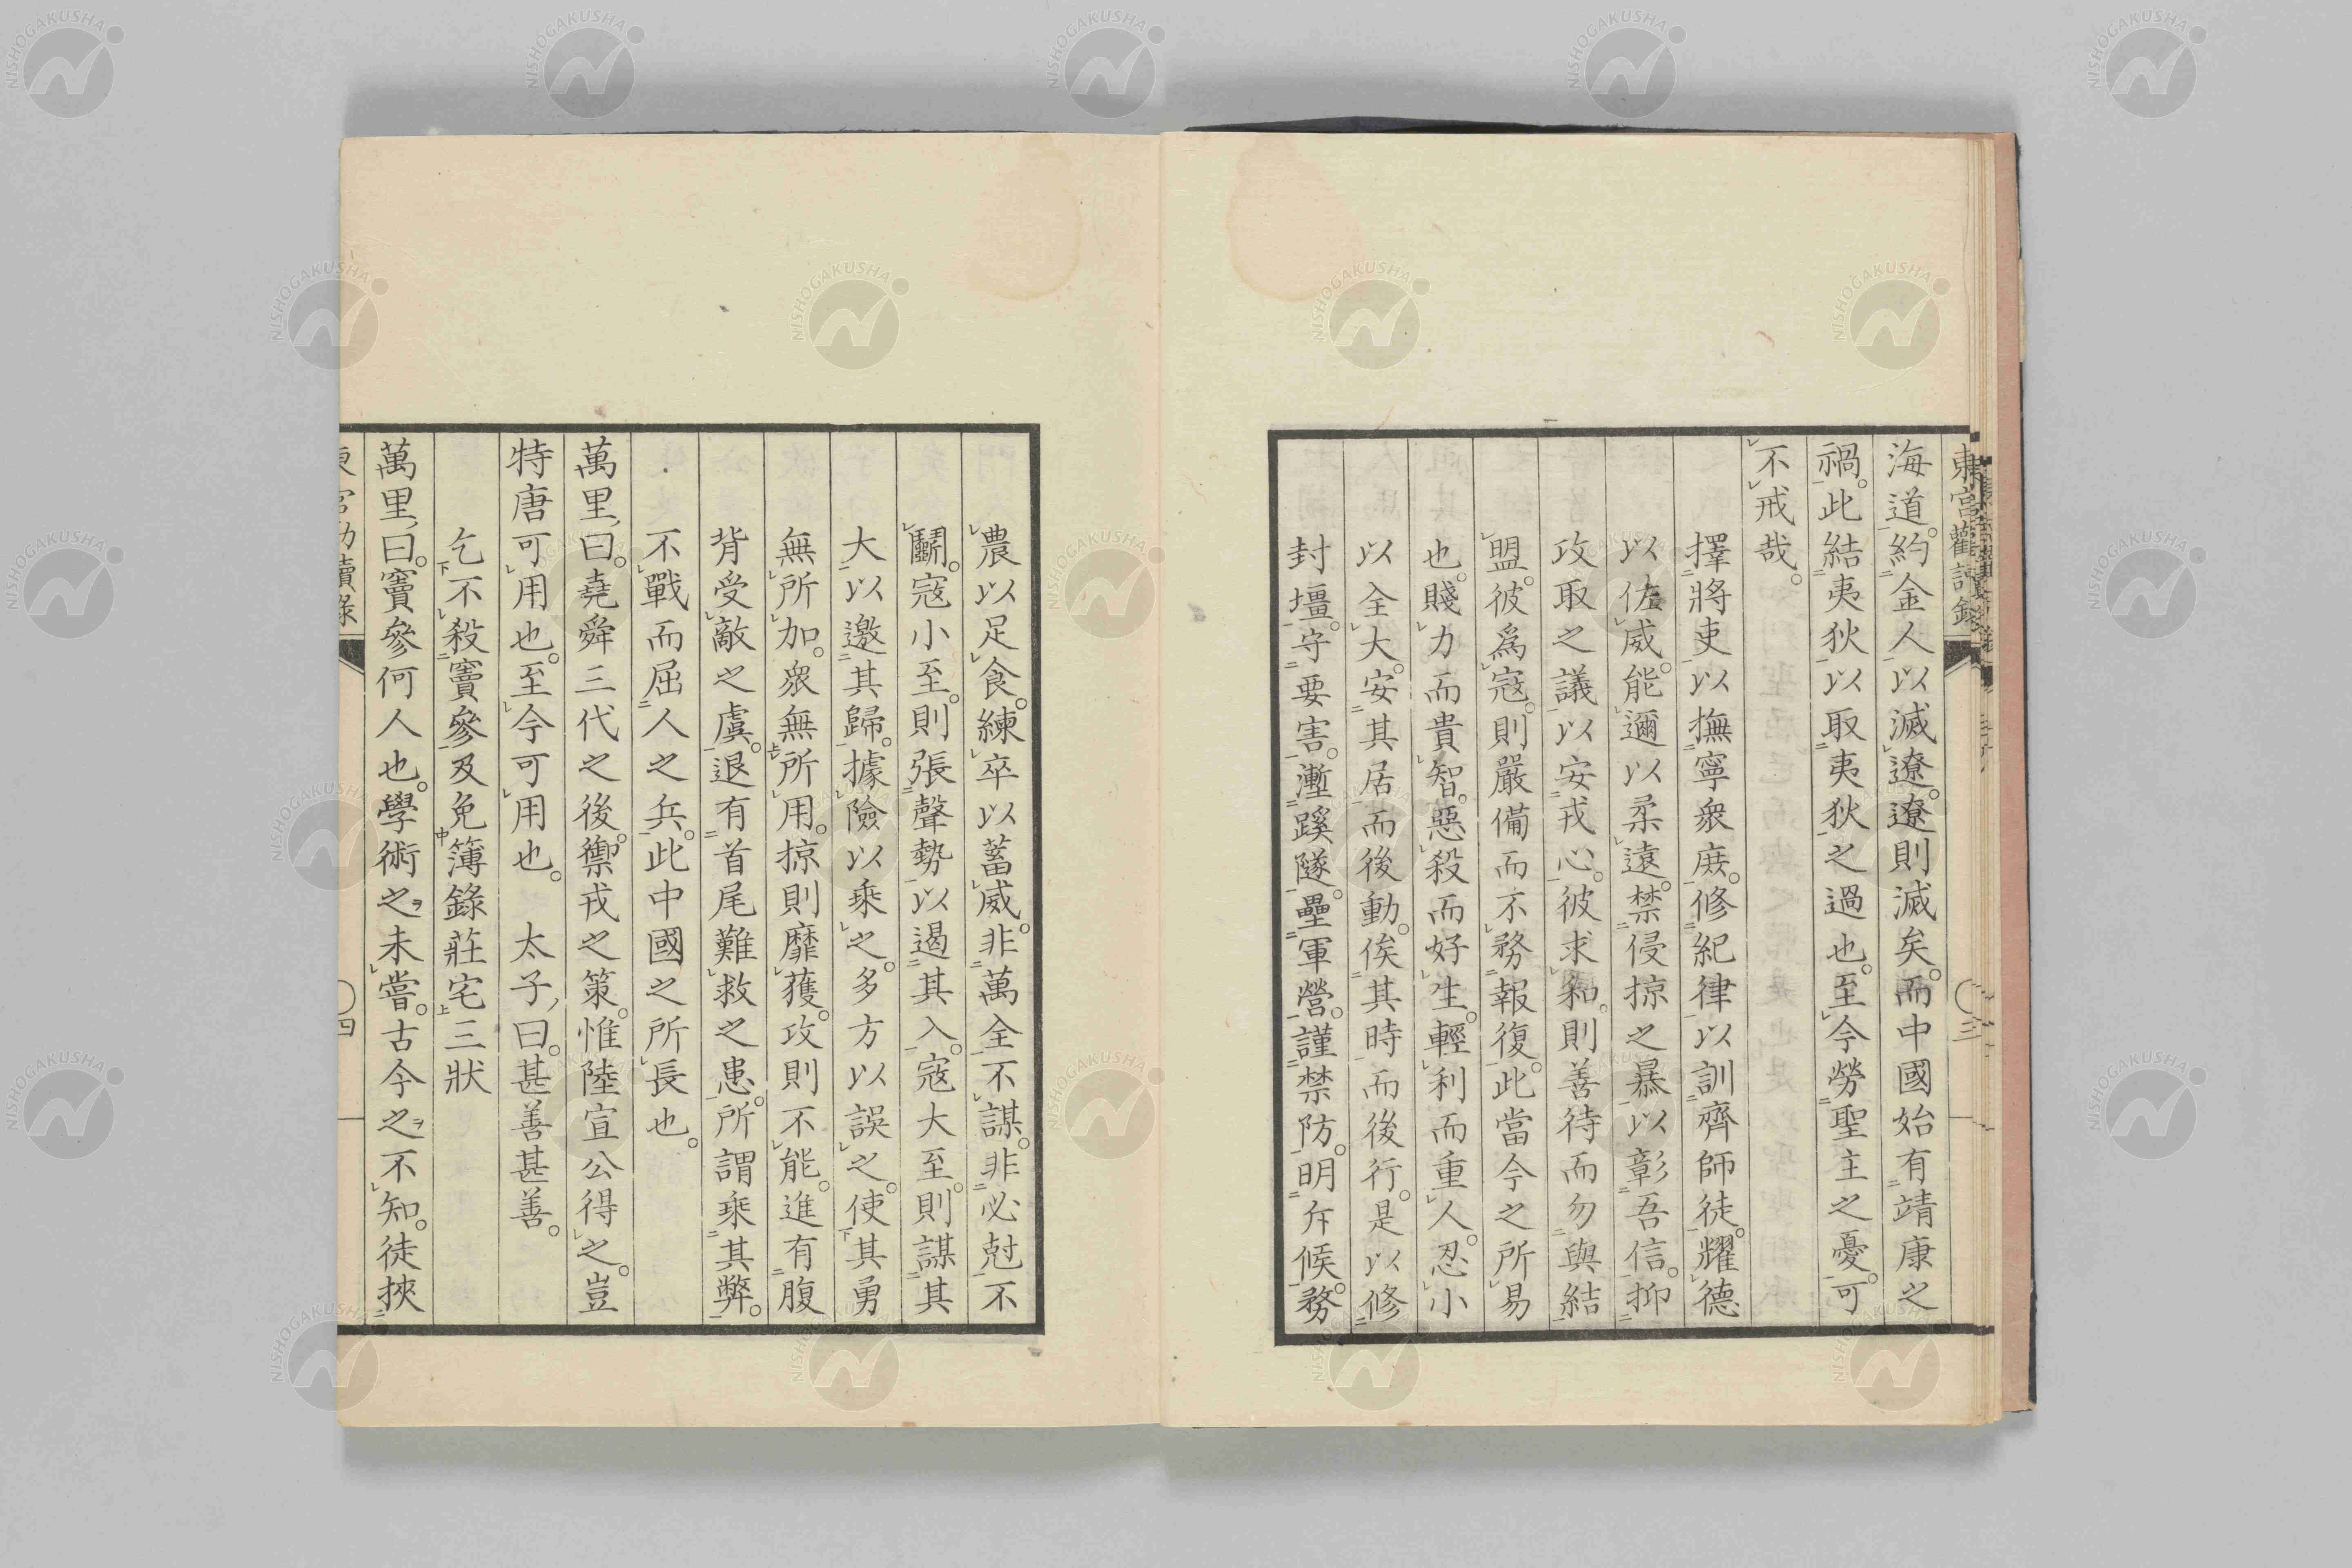 海道。約金人以滅遼。遼則滅矣。而中國始有靖康之
禍。此結夷狄以取夷狄之過也。至今勞聖主之憂。可
不戒哉。
擇將吏以撫寧衆庶。修紀律以訓齊師徒。耀德
以佐威。能邇以柔遠。禁侵掠之暴以彰吾信。抑
攻取之議以安戎心。彼求和。則善待而勿與結
盟。彼爲寇。則嚴備而不務報復。此當今之所易
也。賤力而貴智。惡殺而好生。輕利而重人。忍小
以全大。安其居而後動。俟其時而後行。是以修
封壃。守要害。壍蹊隧。壘軍營。謹禁防。明斥候。務
農以足食。練卒以蓄威。非萬全不謀。非必尅不
鬭。寇小至。則張聲勢以遏其入。寇大至。則謀其
大以邀其歸。據險以乘之。多方以誤之。使其勇
無所加。衆無所用。掠則靡獲。攻則不能。進有腹
背受敵之虞。退有首尾難救之患。所謂乘其弊。
不戰而屈人之兵。此中國之所長也。
萬里曰。堯舜三代之後。禦戎之策。惟陸宣公得之。豈
特唐可用也。至今可用也。 太子曰。甚善甚善。
乞不殺竇參及免簿錄莊宅三狀
萬里曰。竇參何人也。學術之ヲ未嘗。古今之ヲ不知。徒挾
東宮勸讀錄
〇三
〇四
NISHOGAKUSHA